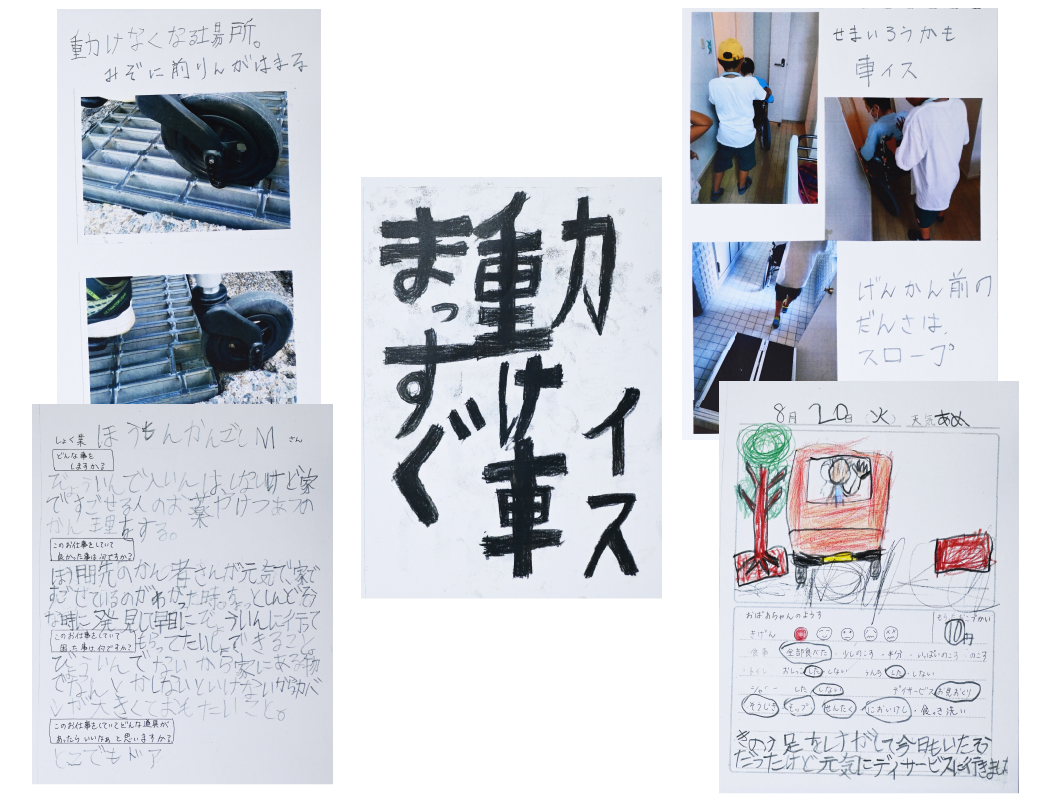 動けなくなる場所。
みぞに前りんがはまる
せまいろうかも
車イス
げんかん前の
だんさは、
スロープ
まっすぐ
動け車
力
イス
しょく業 ほうもんかんごしM さん
どんな事を
しますか?
びょういんで入いんは
ですごせる人のお薬やけつあつの
かん理をする。
このお仕事をしていて
良かった事は何ですか?
ほう問先のかん者さんが元気で家で
すごせているのがわかった時。ちょっとしんどそう
な時に発見して早目にびょういんに行って
もらってたいしょできること
このお仕事をしていて
困った事は何ですか?
びょういんでないから家にある物
でなんとかしないといけないからカバ
ンが大きくておもたいこと。
このお仕事をしていてどんな道具が
あったらいいなぁと思いますか?
どこでもドア
8月20日(火) 天気 あめ
おばあちゃんのようす
きげん
10円
食事 全部食べた・少しのこす・半分・いっぱいのこす・のこす
おしっこ した・しない うんち した・しない
シャワー した しない デイサービス お見おくり
そうじき モップ せんたく においけし・食っき洗い
きのう足をけがして今日もいたそう
だったけど元気にデイサービスに行きました